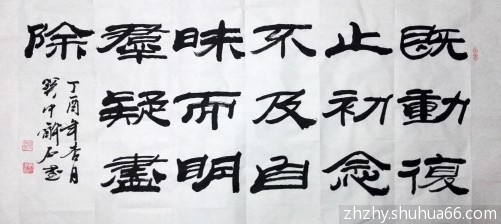 既動復
止初念
不及自
昧而明
羣疑盡
除
丁酉年杏月
zhzhy.shuhua66.com